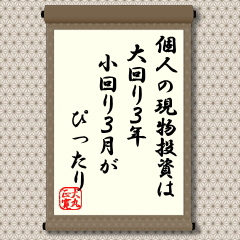 個人の現物投資は
大回り3年
小回り3月が
ぴったり